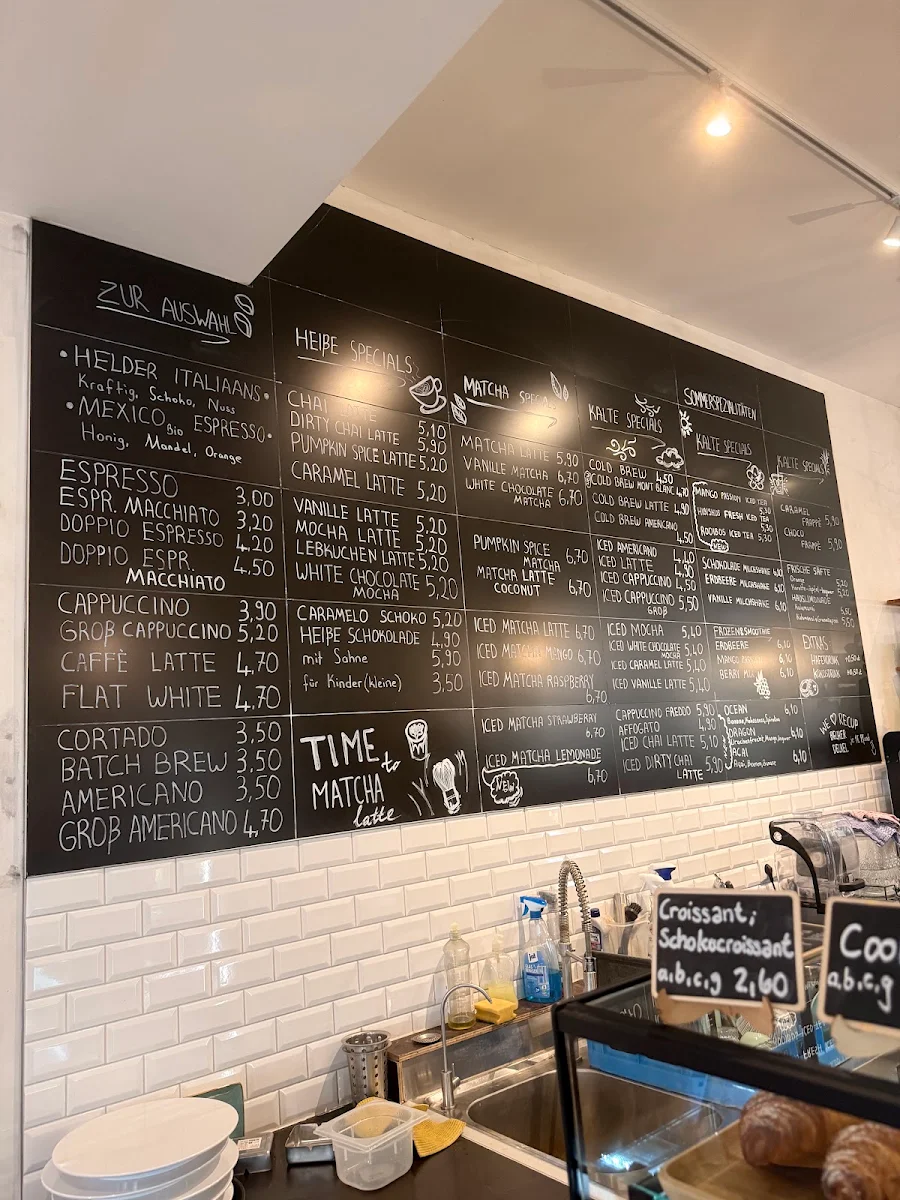 ZUR AUSWAHL
• HELDER ITALIAANS •
Kraftig, Schoko, Nuss
• MEXICO Bio ESPRESSO •
Honig, Mandel, Orange
ESPRESSO 3,00
ESPR. MACCHIATO 3,20
DOPPIO ESPRESSO 4.20
DOPPIO ESPR. 4.50
MACCHIATO
CAPPUCCINO 3,90
GROẞ CAPPUCCINO 5,20
CAFFÈ LATTE 4,70
FLAT WHITE 4.70
CORTADO 3,50
BATCH BREW 3,50
AMERICANO 3,50
GROẞ AMERICANO 4,70
HEIẞE SPECIALS
CHAI LATTE 5,10
DIRTY CHAI LATTE 5,90
PUMPKIN SPICE LATTE 5,20
CARAMEL LATTE 5,20
VANILLE LATTE 5,20
MOCHA LATTE 5,20
LEBKUCHEN LATTE 5,20
WHITE CHOCOLATE 5,20
MOCHA
CARAMELO SCHOKO 5,20
HEIẞE SCHOKOLADE 4,90
mit Sahne 5,90
für Kinder (kleine) 3,50
TIME
to
MATCHA
latte
MATCHA SPECIALS
MATCHA LATTE 5,90
VANILLE MATCHA 6,70
WHITE CHOCOLATE 6,70
MATCHA
PUMPKIN SPICE 6,70
MATCHA
MATCHA LATTE 6,70
COCONUT
ICED MATCHA LATTE 6,70
ICED MATCHA MANGO 6,70
ICED MATCHA RASPBERRY
6,70
ICED MATCHA STRAWBERRY
6,70
ICED MATCHA LEMONADE
NEW 6,70
KALTE SPECIALS
COLD BREW 4,50
COLD BREW MONT BLANC 4,70
COLD BREW LATTE 4,90
COLD BREW AMERICANO
4,50
ICED AMERICANO 4,40
ICED LATTE
ICED CAPPUCCINO 4,50
ICED CAPPUCCINO 5,50
GROẞ
ICED MOCHA 5,40
ICED WHITE CHOCOLATE 5,40
MOCHA
ICED CARAMEL LATTE 5,40
ICED VANILLE LATTE 5,40
CAPPUCCINO FREDDO 5,90
AFFOGATO 4,90
ICED CHAI LATTE 5,10
ICED DIRTY CHAI 5,90
LATTE
SOMMERSPEZIALITÄTEN
KALTE SPECIALS
MANGO PASSION ICED TEA
5,30
FRESH ICED TEA
5,30
ROOIBOS ICED TEA 5,30
NEW
SCHOKOLADE MILCHSHAKE 6,10
ERDBEERE MILCHSHAKE 6,10
VANILLE MILCHSHAKE 6,10
FROZEN SMOOTHIE
ERDBEERE 6,10
MANGO 6,10
BERRY MIX 6,10
OCEAN 6,10
DRAGON 6,10
AÇAI 6,10
KALTE SPECIALS
CARAMEL
FRAPPÉ 5,90
CHOCO
FRAPPÉ 5,90
FRISCHE SÄFTE
Orange
HAUSLIMONADE
EXTRAS
HAFERDRINK
WE ♡ RECUP
Croissant,
Schokocroissant
a,b,c,g 2,60
Coo
a,b,c,g